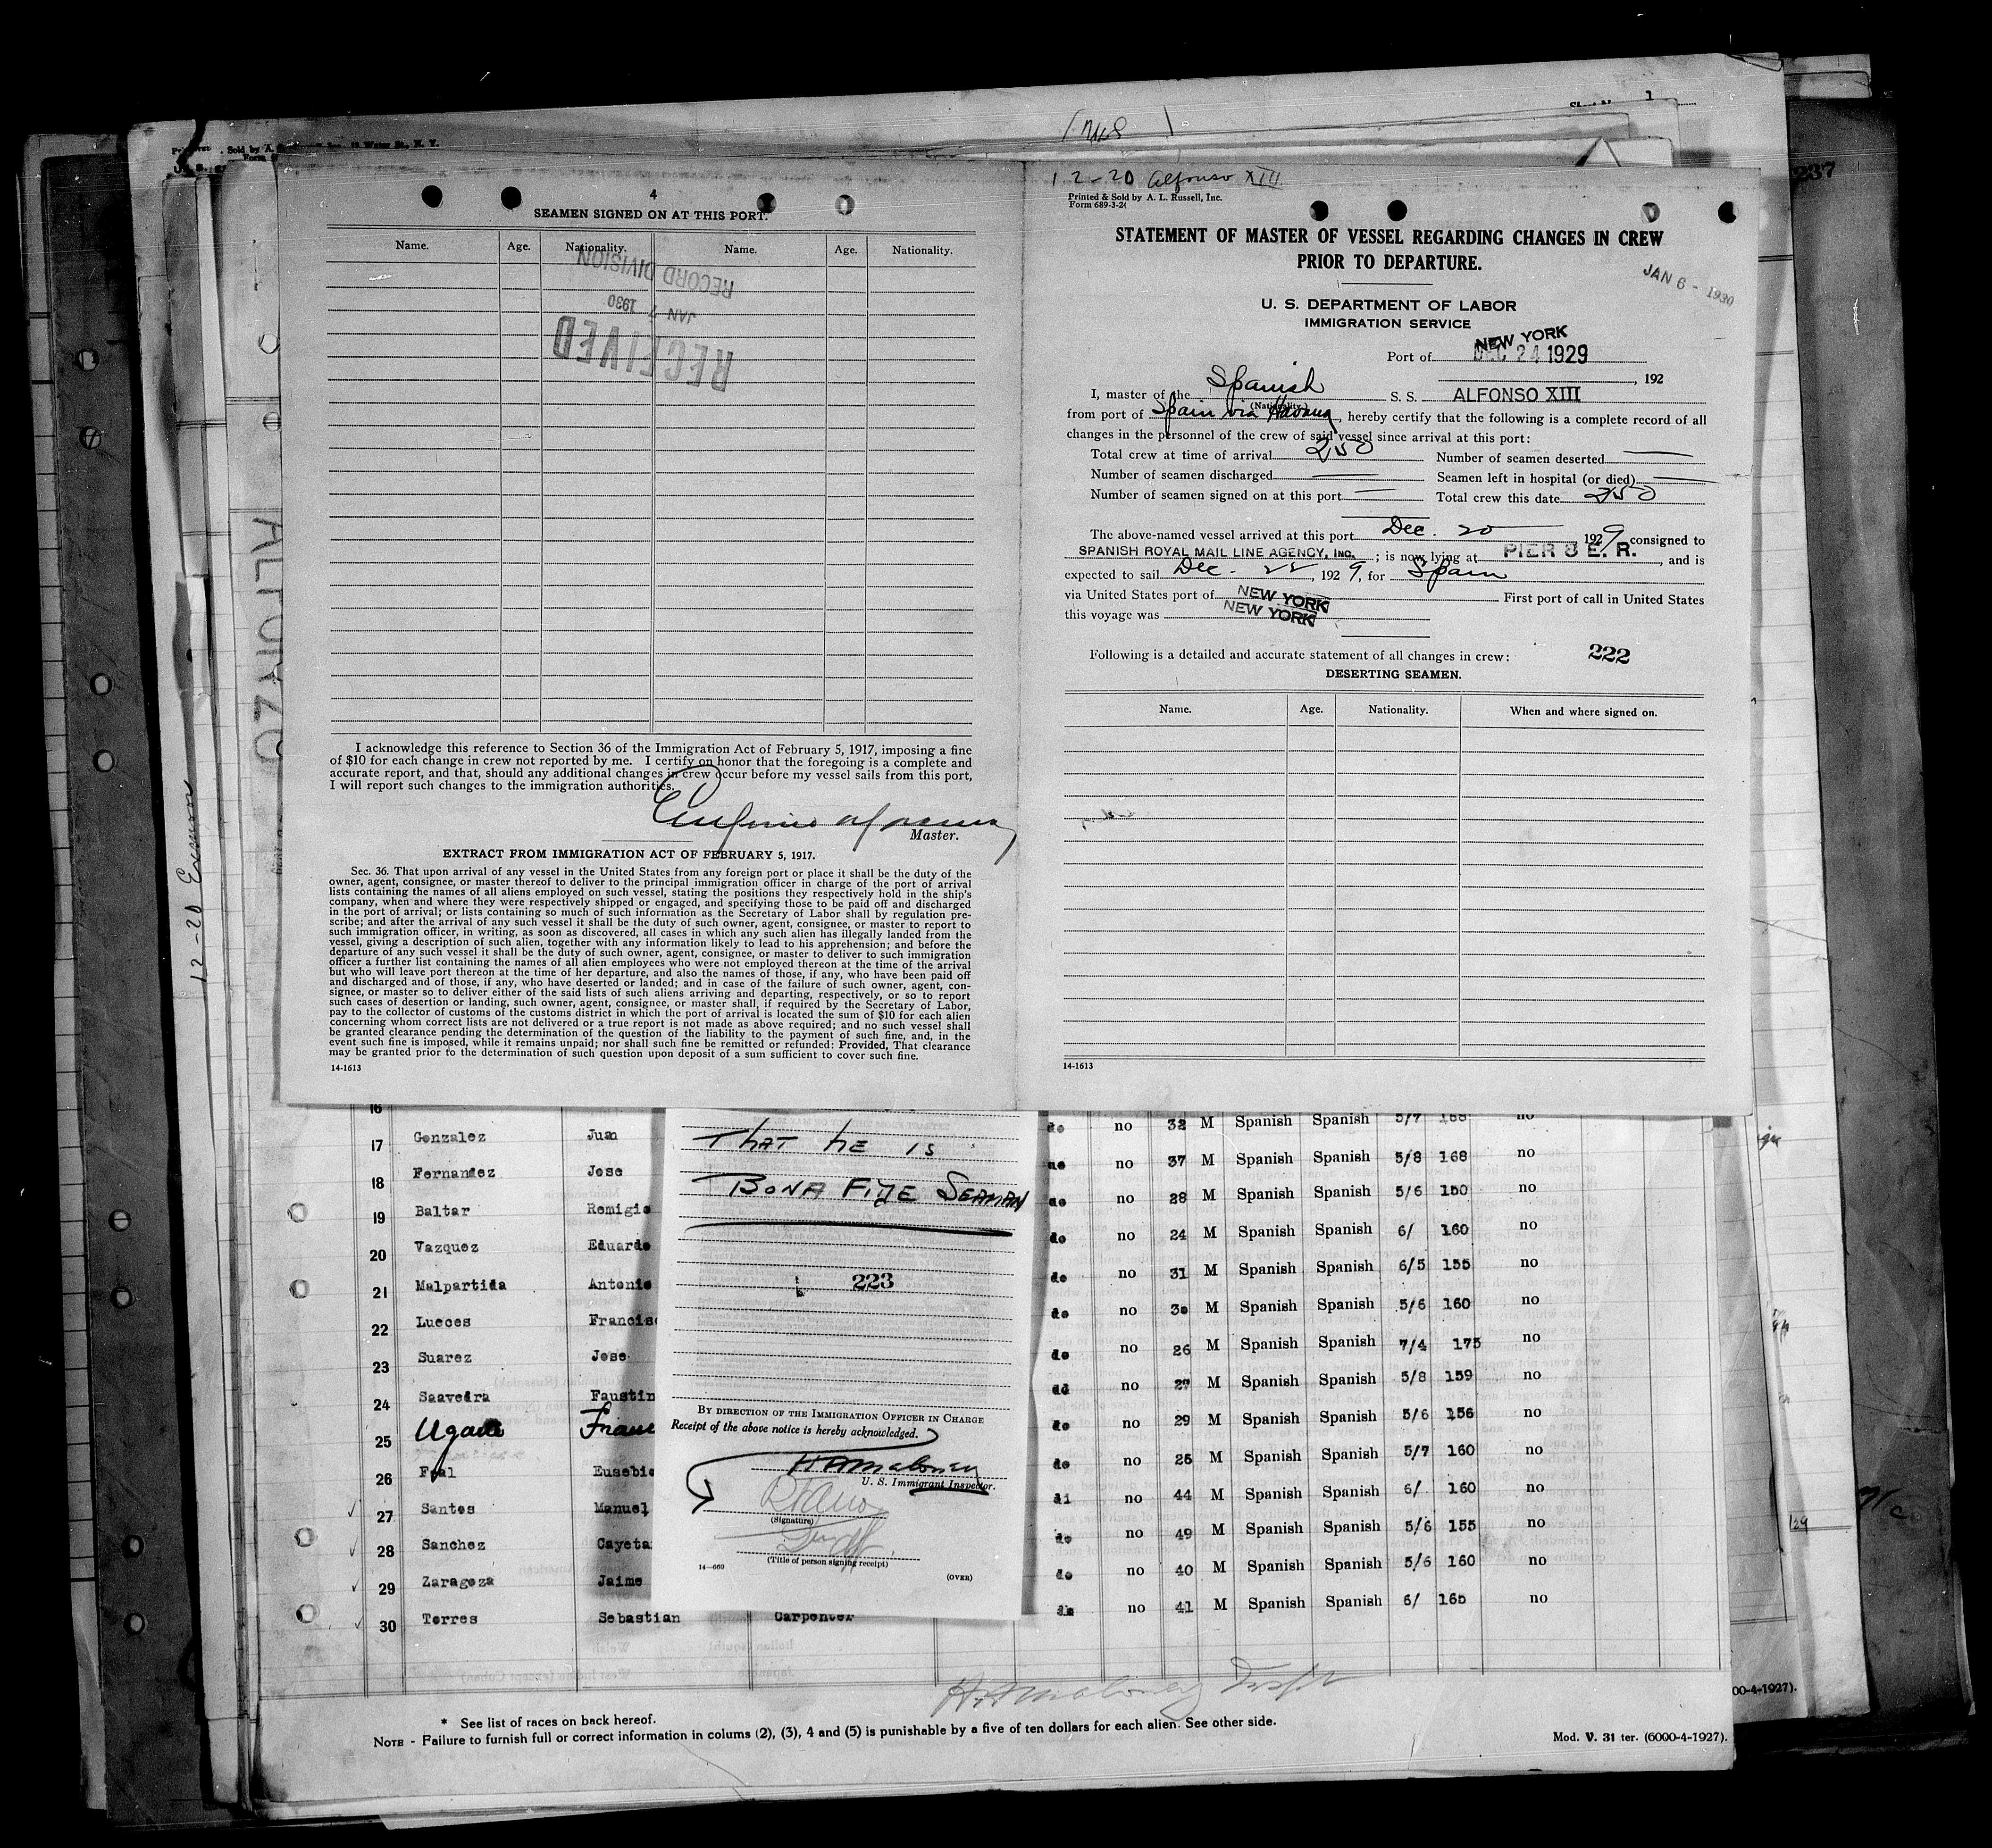 1
237
Sold by A.
Water St., N. Y.
4
SEAMEN SIGNED ON AT THIS PORT.
Name. Age. Nationality. Name. Age. Nationality.
RECORD DIVISION
JAN 7 1930
RECEIVED
I acknowledge this reference to Section 36 of the Immigration Act of February 5, 1917, imposing a fine
of $10 for each change in crew not reported by me. I certify on honor that the foregoing is a complete and
accurate report, and that, should any additional changes in crew occur before my vessel sails from this port,
I will report such changes to the immigration authorities.
Master.
EXTRACT FROM IMMIGRATION ACT OF FEBRUARY 5, 1917.
Sec. 36. That upon arrival of any vessel in the United States from any foreign port or place it shall be the duty of the
owner, agent, consignee, or master thereof to deliver to the principal immigration officer in charge of the port of arrival
lists containing the names of all aliens employed on such vessel, stating the positions they respectively hold in the ship's
company, when and where they were respectively shipped or engaged, and specifying those to be paid off and discharged
in the port of arrival; or lists containing so much of such information as the Secretary of Labor shall by regulation pre-
scribe; and after the arrival of any such vessel it shall be the duty of such owner, agent, consignee, or master to report to
such immigration officer, in writing, as soon as discovered, all cases in which any such alien has illegally landed from the
vessel, giving a description of such alien, together with any information likely to lead to his apprehension; and before the
departure of any such vessel it shall be the duty of such owner, agent, consignee, or master to deliver to such immigration
officer a further list containing the names of all alien employees who were not employed thereon at the time of the arrival
but who will leave port thereon at the time of her departure, and also the names of those, if any, who have been paid off
and discharged and of those, if any, who have deserted or landed; and in case of the failure of such owner, agent, con-
signee, or master so to deliver either of the said lists of such aliens arriving and departing, respectively, or so to report
such cases of desertion or landing, such owner, agent, consignee, or master shall, if required by the Secretary of Labor,
pay to the collector of customs of the customs district in which the port of arrival is located the sum of $10 for each alien
concerning whom correct lists are not delivered or a true report is not made as above required; and no such vessel shall
be granted clearance pending the determination of the question of the liability to the payment of such fine, and, in the
event such fine is imposed, while it remains unpaid; nor shall such fine be remitted or refunded: Provided, That clearance
may be granted prior to the determination of such question upon deposit of a sum sufficient to cover such fine.
14-1613
12-20 Alfonso XIII
Printed & Sold by A. L. Russell, Inc.
Form 689-3-2
STATEMENT OF MASTER OF VESSEL REGARDING CHANGES IN CREW
PRIOR TO DEPARTURE.
JAN 6 - 1930
U. S. DEPARTMENT OF LABOR
IMMIGRATION SERVICE
Port of NEW YORK
DEC 24 1929
, 192
I, master of the Spanish S. S. ALFONSO XIII
(Nationality)
from port of Spain via Havana, hereby certify that the following is a complete record of all
changes in the personnel of the crew of said vessel since arrival at this port:
Total crew at time of arrival 250 Number of seamen deserted —
Number of seamen discharged — Seamen left in hospital (or died) —
Number of seamen signed on at this port — Total crew this date 250
The above-named vessel arrived at this port Dec. 20 1929 consigned to
SPANISH ROYAL MAIL LINE AGENCY, INC. ; is now lying at PIER 8 E. R. , and is
expected to sail Dec. , 1929, for Spain
via United States port of NEW YORK First port of call in United States
this voyage was NEW YORK
Following is a detailed and accurate statement of all changes in crew: 222
DESERTING SEAMEN.
Name. Age. Nationality. When and where signed on.
14-1613
ALFONZO
12-20 Exmoor
16 do no 32 M Spanish Spanish 5/7 168 no
17 Gonzalez Juan do no 37 M Spanish Spanish 5/8 168 no
18 Fernandez Jose do no 28 M Spanish Spanish 5/6 150 no
19 Baltar Remigio do no 24 M Spanish Spanish 6/ 160 no
20 Vazquez Eduardo do no 31 M Spanish Spanish 6/5 155 no
21 Malpartida Antonio do no 30 M Spanish Spanish 5/6 160 no
22 Lueces Francisc do no 26 M Spanish Spanish 7/4 175 no
23 Suarez Jose do no 27 M Spanish Spanish 5/8 159 no
24 Saavedra Faustin do no 29 M Spanish Spanish 5/6 156 no
25 Ugarte Franc do no 25 M Spanish Spanish 5/7 160 no
26 Feal Eusebio di no 44 M Spanish Spanish 6/ 160 no
27 Santos Manuel do no 49 M Spanish Spanish 5/6 155 no
28 Sanchez Cayeta do no 40 M Spanish Spanish 5/6 160 no
29 Zaragoza Jaime do no 41 M Spanish Spanish 6/ 165 no
30 Torres Sebastian Carpenter
THAT HE IS
BONA FIDE SEAMAN
223
BY DIRECTION OF THE IMMIGRATION OFFICER IN CHARGE
Receipt of the above notice is hereby acknowledged.
HA Maloney
U. S. Immigrant Inspector.
(Signature)
(Title of person signing receipt)
14—660
(OVER)
HA Maloney Insp
* See list of races on back hereof.
NOTE - Failure to furnish full or correct information in colums (2), (3), 4 and (5) is punishable by a five of ten dollars for each alien. See other side.
Mod. V. 31 ter. (6000-4-1927).
00-4-1927).